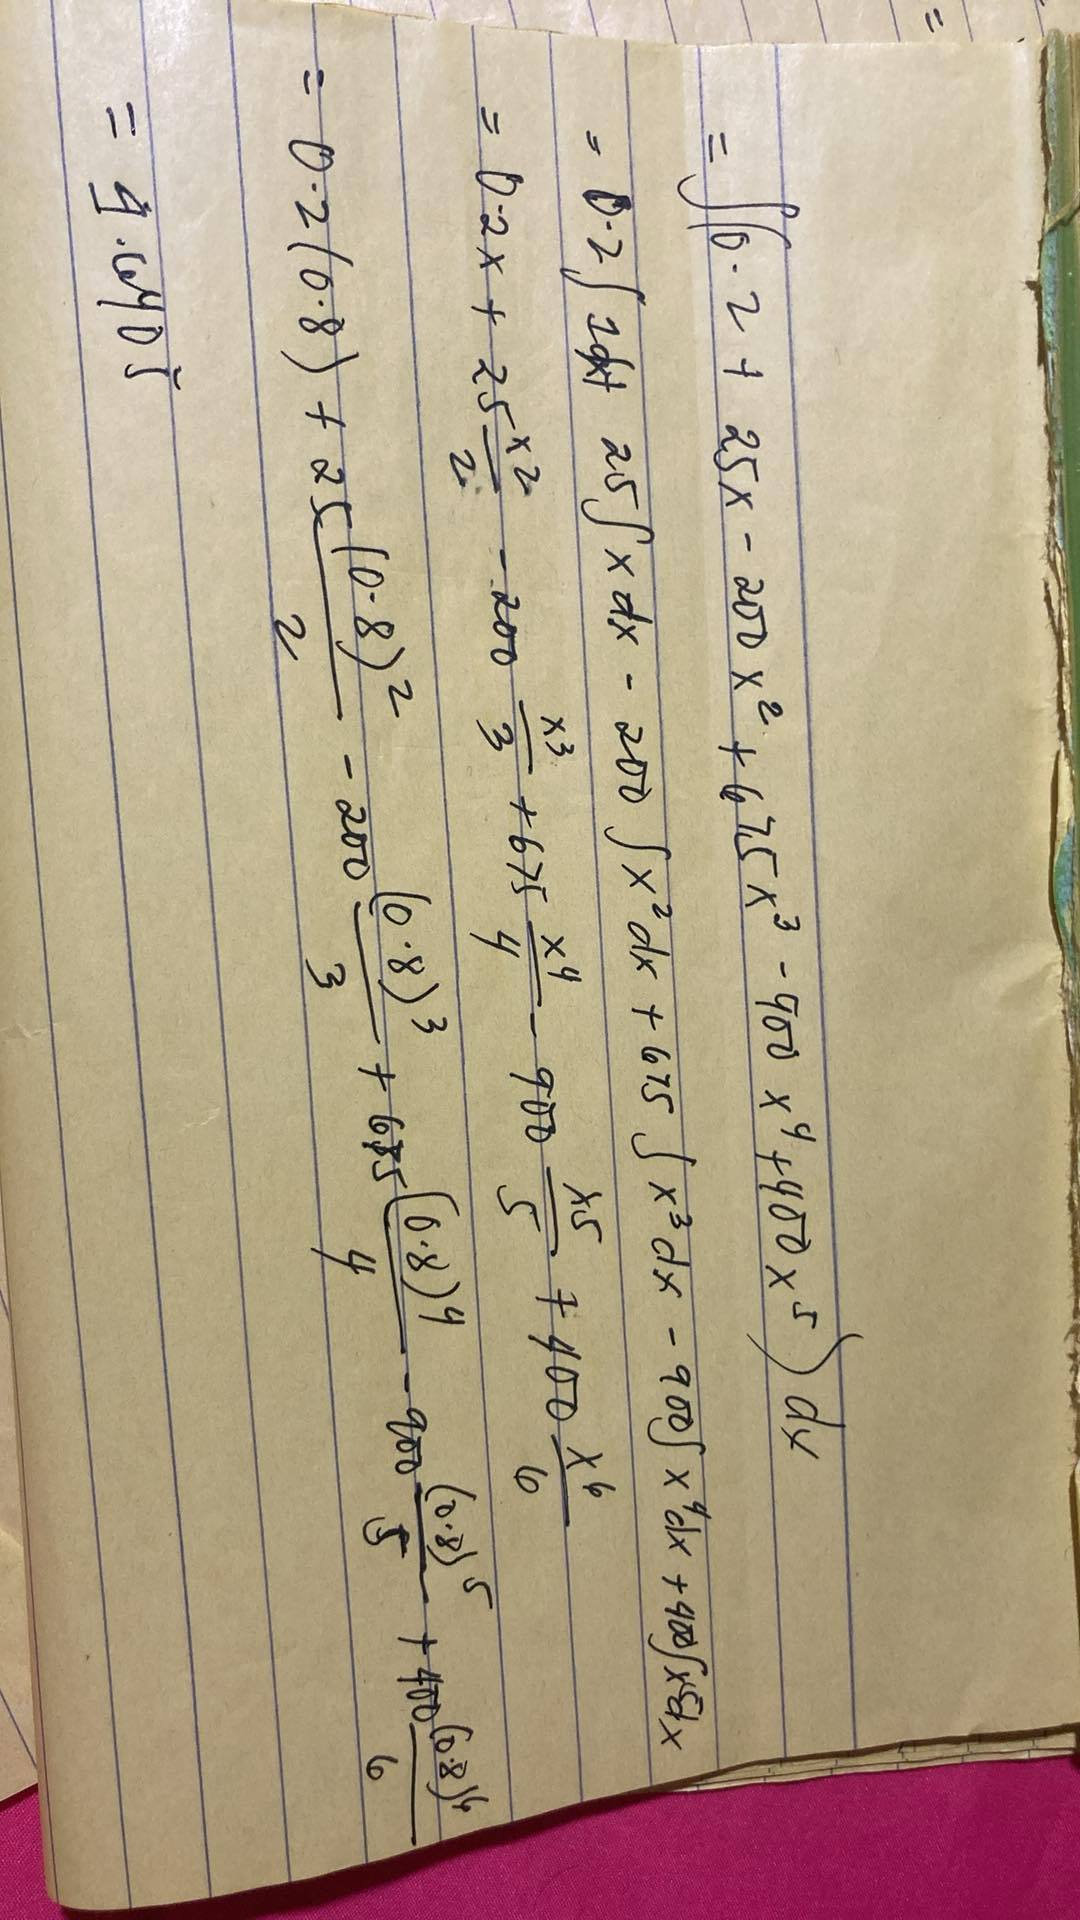 =
= ∫(0.2 + 25x - 200x² + 675x³ - 900x⁴ + 400x⁵) dx
= 0.2∫1dx + 25∫x dx - 200∫x²dx + 675∫x³dx - 900∫x⁴dx + 400∫x⁵dx
= 0.2x + 25 x²/2 - 200 x³/3 + 675 x⁴/4 - 900 x⁵/5 + 400 x⁶/6
= 0.2(0.8) + 25 (0.8)²/2 - 200 (0.8)³/3 + 675 (0.8)⁴/4 - 900 (0.8)⁵/5 + 400 (0.8)⁶/6
= 9.6405